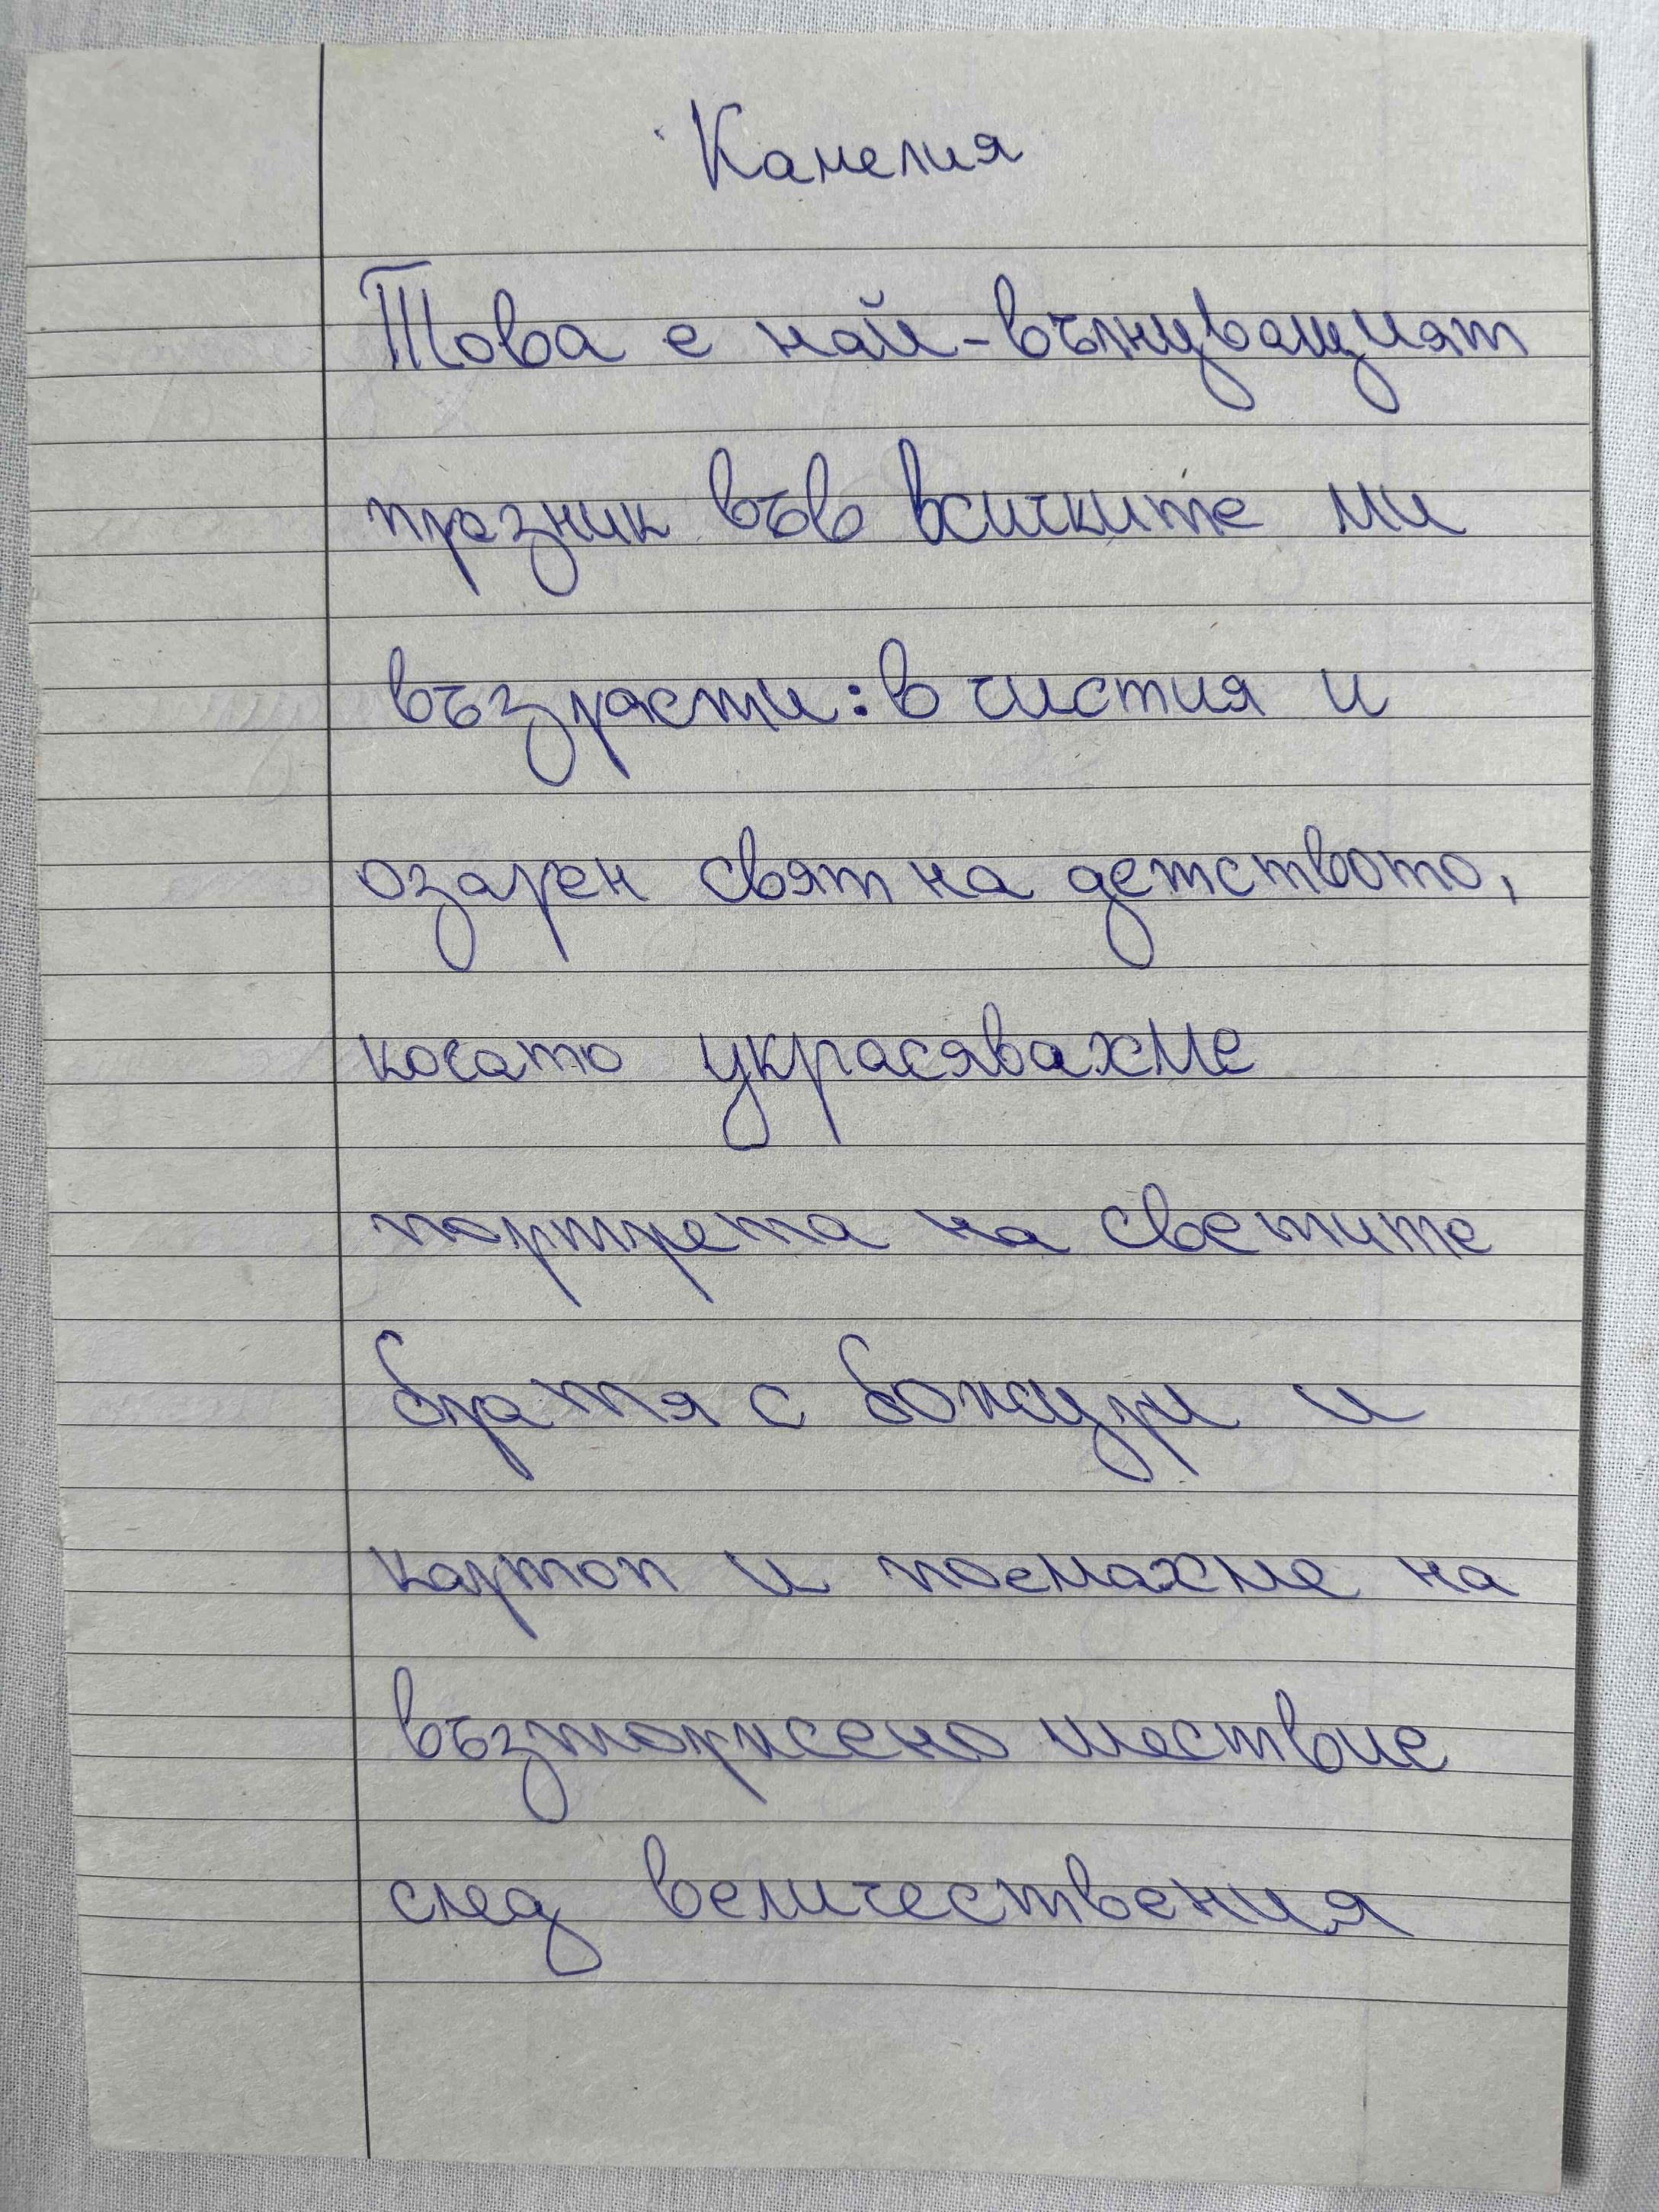 Камелия
Това е най-вълнуващият
празник във всичките ми
възрасти: в чистия и
озарен свят на детството,
когато украсявахме
портрета на светите
братя с божури и
картоп и поемахме на
възторжено шествие
след величествения